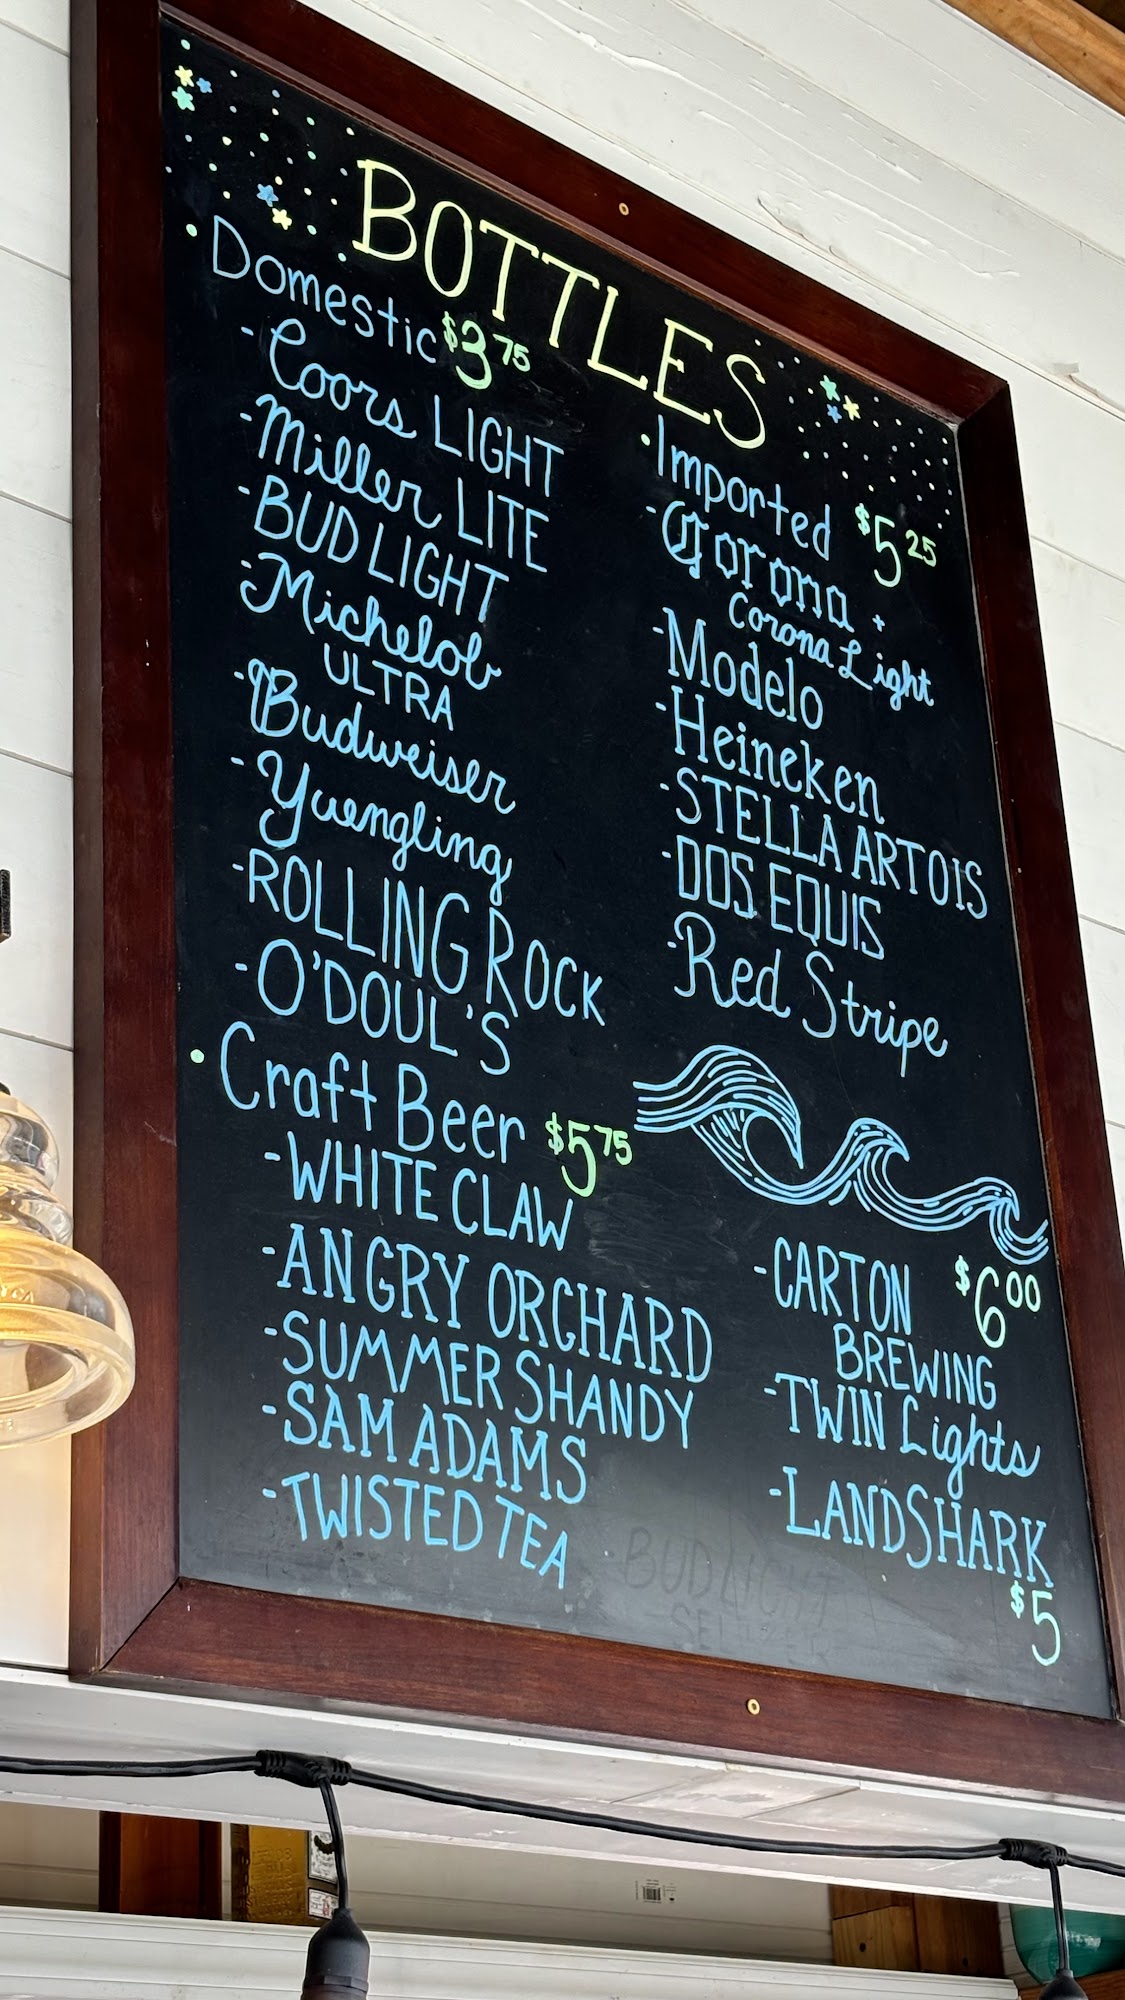 BOTTLES
Domestic $3.75
-Coors LIGHT
-Miller LITE
-BUD LIGHT
-Michelob
ULTRA
-Budweiser
-Yuengling
-ROLLING ROCK
-O'DOUL'S
Craft Beer $5.75
-WHITE CLAW
-ANGRY ORCHARD
-SUMMER SHANDY
-SAM ADAMS
-TWISTED TEA
Imported $5.25
-Corona +
Corona Light
-Modelo
-Heineken
-STELLA ARTOIS
-DOS EQUIS
-Red Stripe
-CARTON $6.00
BREWING
-TWIN Lights
-LANDSHARK
$5
BUD LIGHT
SELTZER